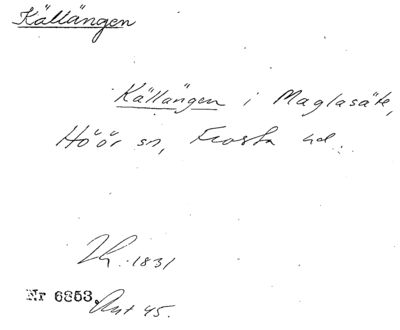 Källängen
Källängen i Maglasäte,
Höör sn, Frosta hd.
1831
Nr 6853. Ant 45.